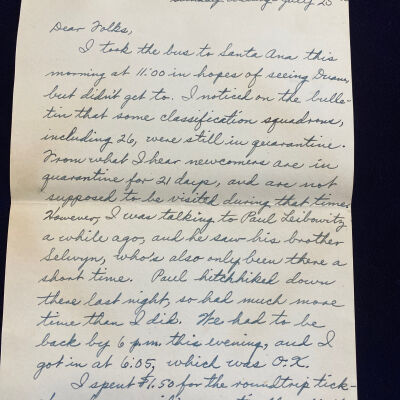 Sunday evening - July 25
Dear Folks,
I took the bus to Santa Ana this
morning at 11:00 in hopes of seeing Duane,
but didn't get to. I noticed on the bulle-
tin that some classification squadrons,
including 26, were still in quarantine.
From what I hear newcomers are in
quarantine for 21 days, and are not
supposed to be visited during that time.
However, I was talking to Paul Leibowitz
a while ago, and he saw his brother
Selwyn, who's also only been there a
short time. Paul hitchhiked down
there last night, so had much more
time than I did. We had to be
back by 6 p.m. this evening, and I
got in at 6:05, which was O.K.
I spent $1.50 for the roundtrip tick-